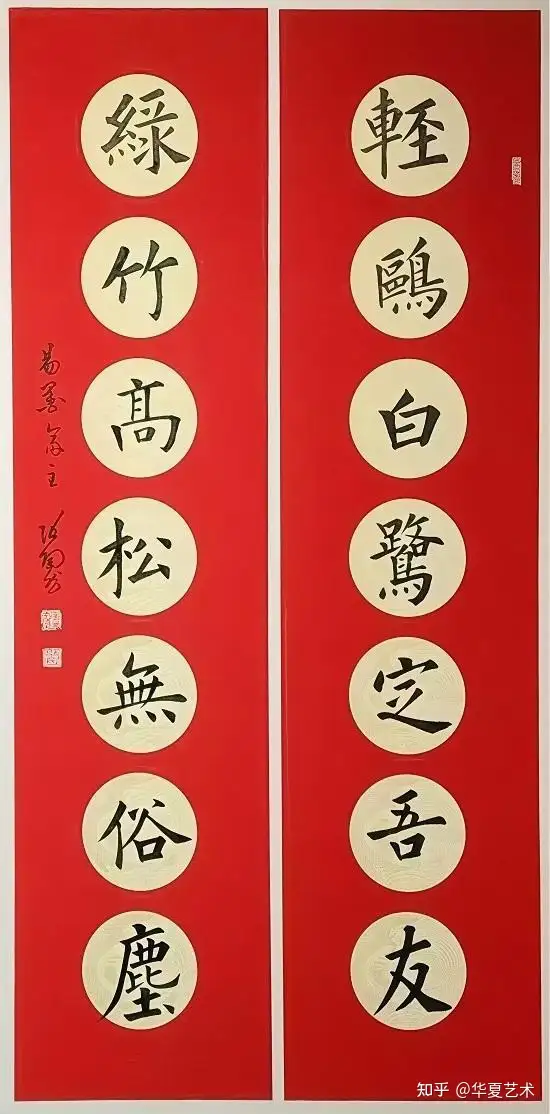 輕鷗白鷺定吾友
綠竹高松無俗塵
易墨齋主
知乎 @华夏艺术